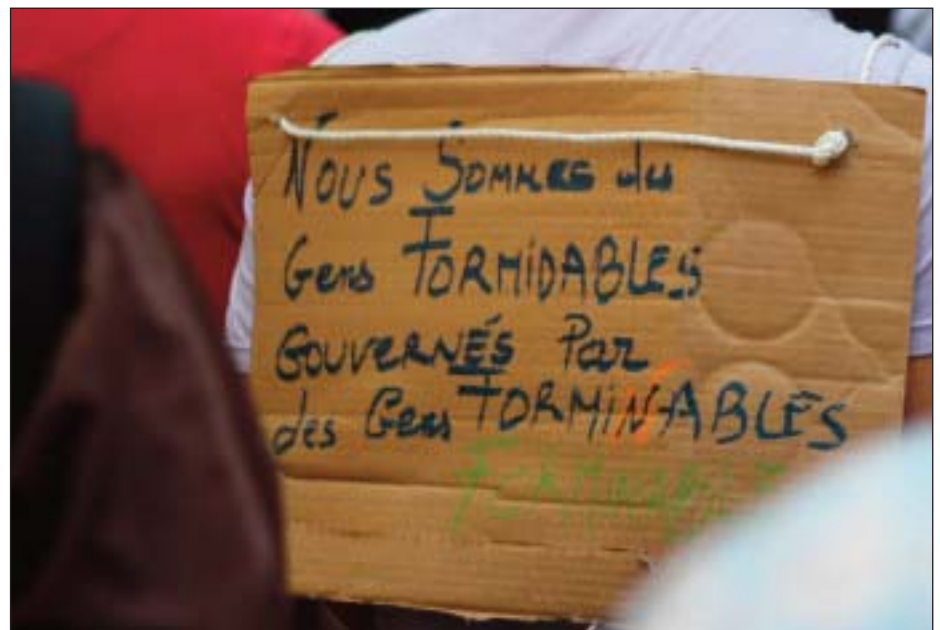 NOUS SOMMES du
Gens FORMIDABLES
GOUVERNÉS Par
des Gens FORMINABLES